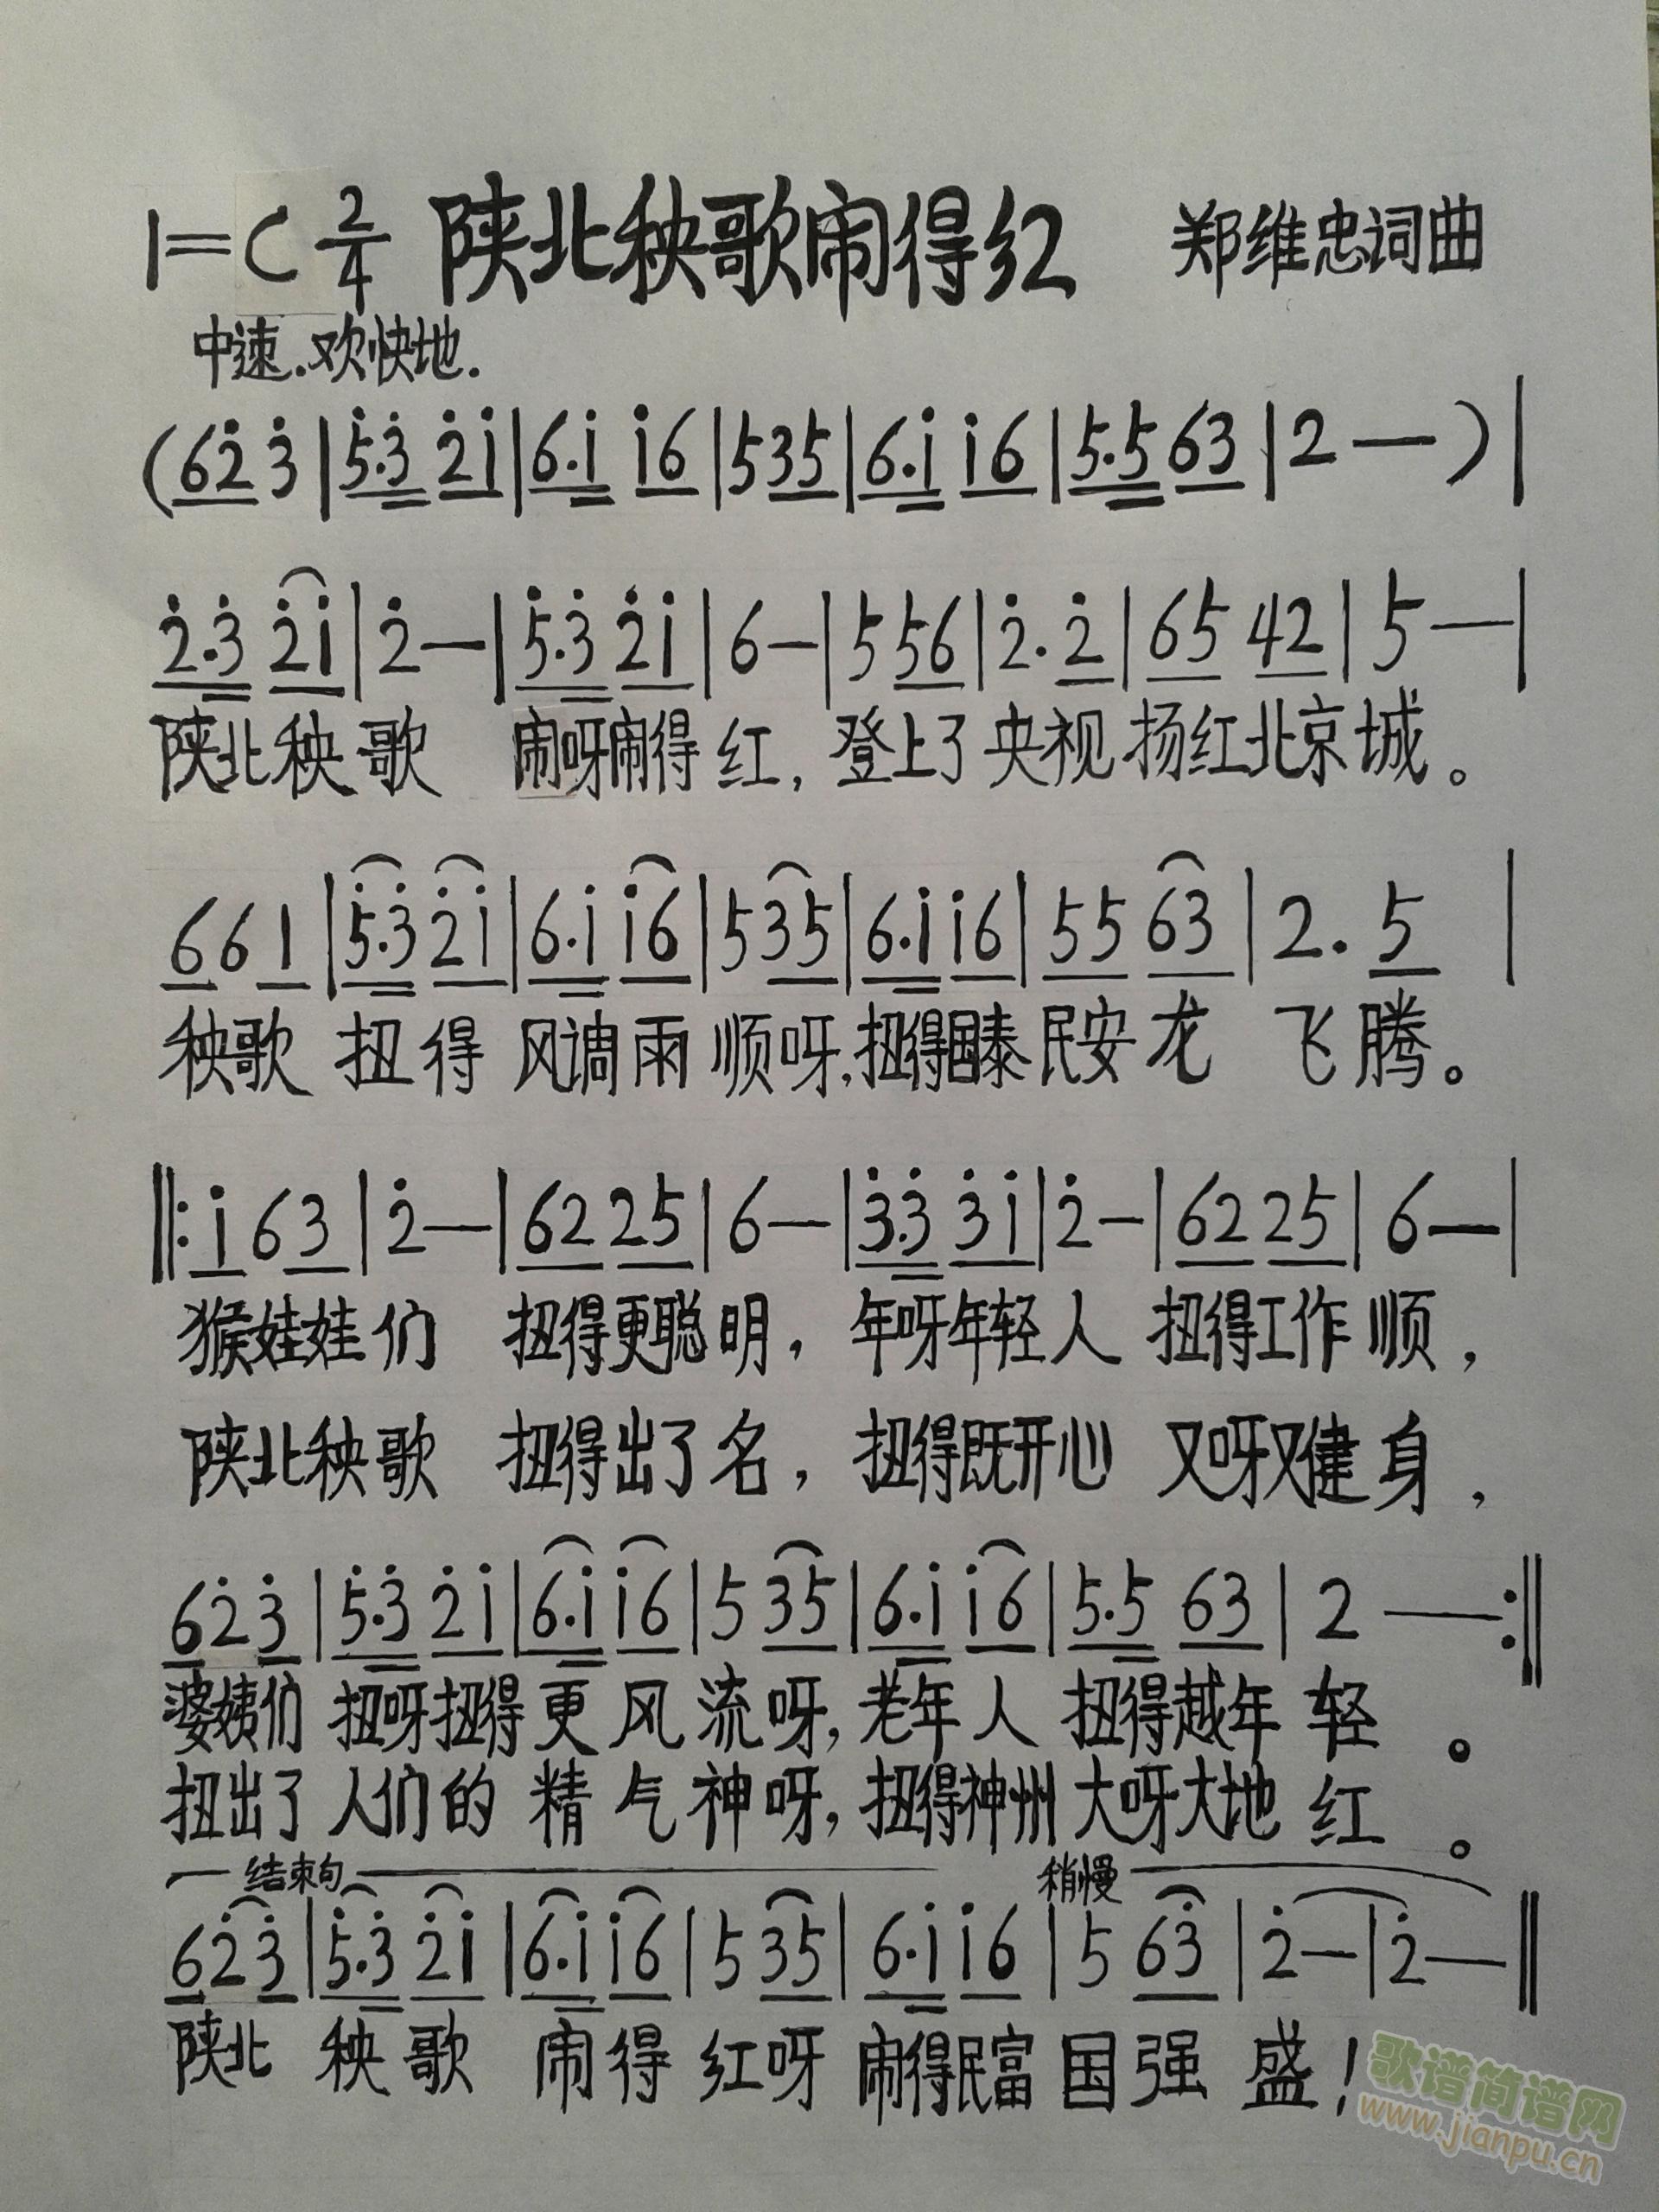 1=C 2/4 陕北秧歌闹得红 郑维忠词曲
中速.欢快地.
(6 2̇ 3̇ | 5̇. 3̇ 2̇ i | 6. i i 6 | 5 3 5 | 6. i i 6 | 5. 5 6 3 | 2 — ) |
2̇. 3̇ 2̇ i | 2̇ — | 5̇. 3̇ 2̇ i | 6 — | 5 5 6 | 2̇. 2̇ | 6 5 4 2 | 5 — |
陕北秧歌 闹呀闹得红,登上了央视扬红北京城。
6 6 1 | 5̇. 3̇ 2̇ i | 6. i i 6 | 5 3 5 | 6. i i 6 | 5 5 6 3 | 2. 5 |
秧歌 扭得 风调雨顺呀,扭得国泰民安龙 飞腾。
‖: i 6 3 | 2̇ — | 6 2 2 5 | 6 — | 3̇. 3̇ 3̇ i | 2̇ — | 6 2 2 5 | 6 — |
猴娃娃们 扭得更聪明,年呀年轻人 扭得工作顺,
陕北秧歌 扭得出了名,扭得既开心 又呀又健身,
6 2̇ 3̇ | 5̇. 3̇ 2̇ i | 6. i i 6 | 5 3 5 | 6. i i 6 | 5. 5 6 3 | 2 — :‖
婆姨们 扭呀扭得更风流呀,老年人 扭得越年轻。
扭出了人们的 精气神呀,扭得神州大呀大地红。
结束句 稍慢
6 2̇ 3̇ | 5̇. 3̇ 2̇ i | 6. i i 6 | 5 3 5 | 6. i i 6 | 5 6 3̇ | 2̇ — | 2̇ — ‖
陕北 秧歌 闹得红呀 闹得民富国强盛!
歌谱简谱网
www.jianpu.cn